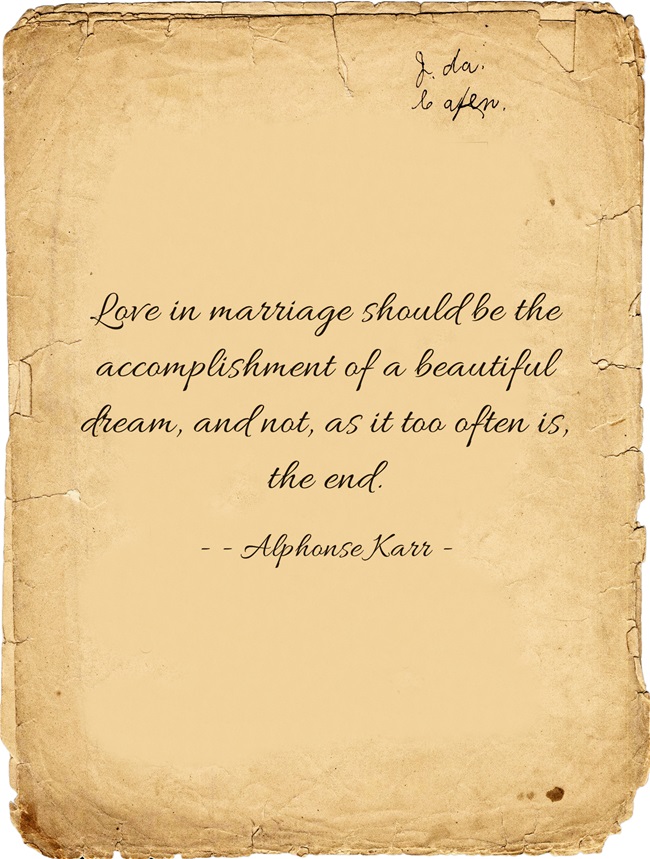 Love in marriage should be the
accomplishment of a beautiful
dream, and not, as it too often is,
the end.
- - Alphonse Karr -